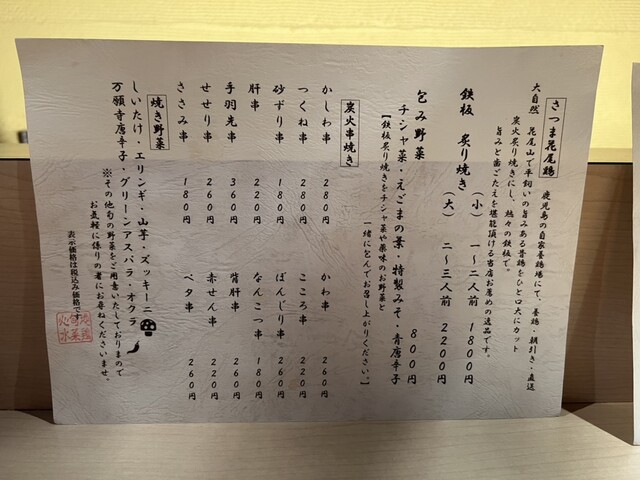 さつま花尾鶏
鹿児島の自家養鶏場にて、養鶏・朝引き・直送
大自然 花尾山で平飼いの旨みある昔鶏をひと口大にカット
炭火炙り焼きにし、熱々の鉄板で。
旨みと歯ごたえを堪能頂ける当店お薦めの逸品です。
鉄板 炙り焼き (小) 一〜二人前 1800円
(大) 二〜三人前 2200円
包み野菜 800円
チシャ菜・えごまの葉・特製みそ・青唐辛子
【鉄板炙り焼きをチシャ菜や薬味のお野菜と
一緒に包んでお召し上がりください。】
炭火串焼き
かしわ串 280円
かわ串 260円
つくね串 280円
こころ串 220円
砂ずり串 180円
ぼんじり串 260円
肝串 220円
なんこつ串 180円
手羽先串 360円
背肝串 260円
せせり串 260円
赤せん串 220円
ささみ串 180円
ペタ串 260円
焼き野菜
しいたけ・エリンギ・山芋・ズッキーニ
万願寺唐辛子・グリーンアスパラ・オクラ
※その他旬の野菜をご用意いたしておりますので
お気軽に係りの者にお尋ねくださいませ。
表示価格は税込み価格です。